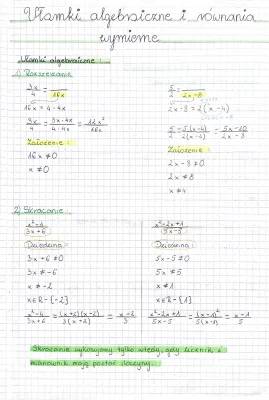 Ułamki algebraiczne i równania
wymierne
Ułamki algebraiczne:
1) Rozszerzanie
3x/4 = /16x
16x = 4 · 4x
3x/4 = 3x·4x/4·4x = 12x²/16x
Założenie:
16x ≠ 0
x ≠ 0
5/2 = /2x-8
2x-8 = 2(x-4)
5/2 = 5(x-4)/2(x-4) = 5x-20/2x-8
Założenie:
2x-8 ≠ 0
2x ≠ 8
x ≠ 4
2) Skracanie:
x²-4/3x+6
Dziedzina:
3x+6 ≠ 0
3x ≠ -6
x ≠ -2
x∈R-{-2}
x²-4/3x+6 = (x+2)(x-2)/3(x+2) = x-2/3
x²-2x+1/5x-5
Dziedzina:
5x-5 ≠ 0
5x ≠ 5
x ≠ 1
x∈R-{1}
x²-2x+1/5x-5 = (x-1)²/5(x-1) = x-1/5
Skracanie wykonujemy tylko wtedy, gdy licznik i
mianownik mają postać iloczynu.